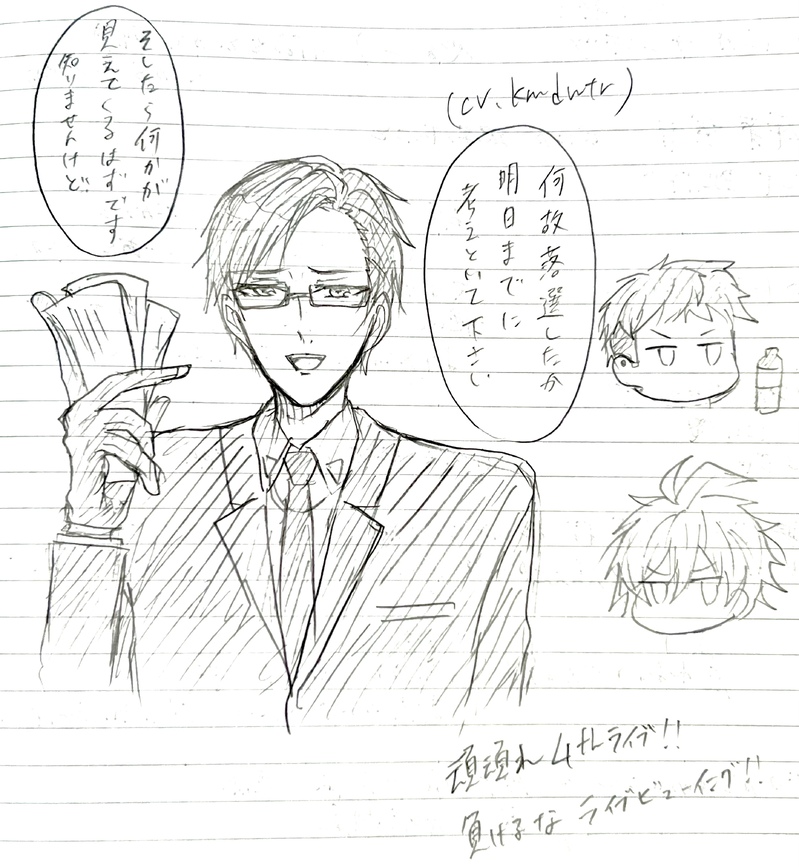 (cv. kmdwtr)
何故落選したか
明日までに
考えといて下さい
そしたら何かが
見えてくるはずです
知りませんけど
頑頑れ 4thライブ!!
負けるな ライブビューイング!!